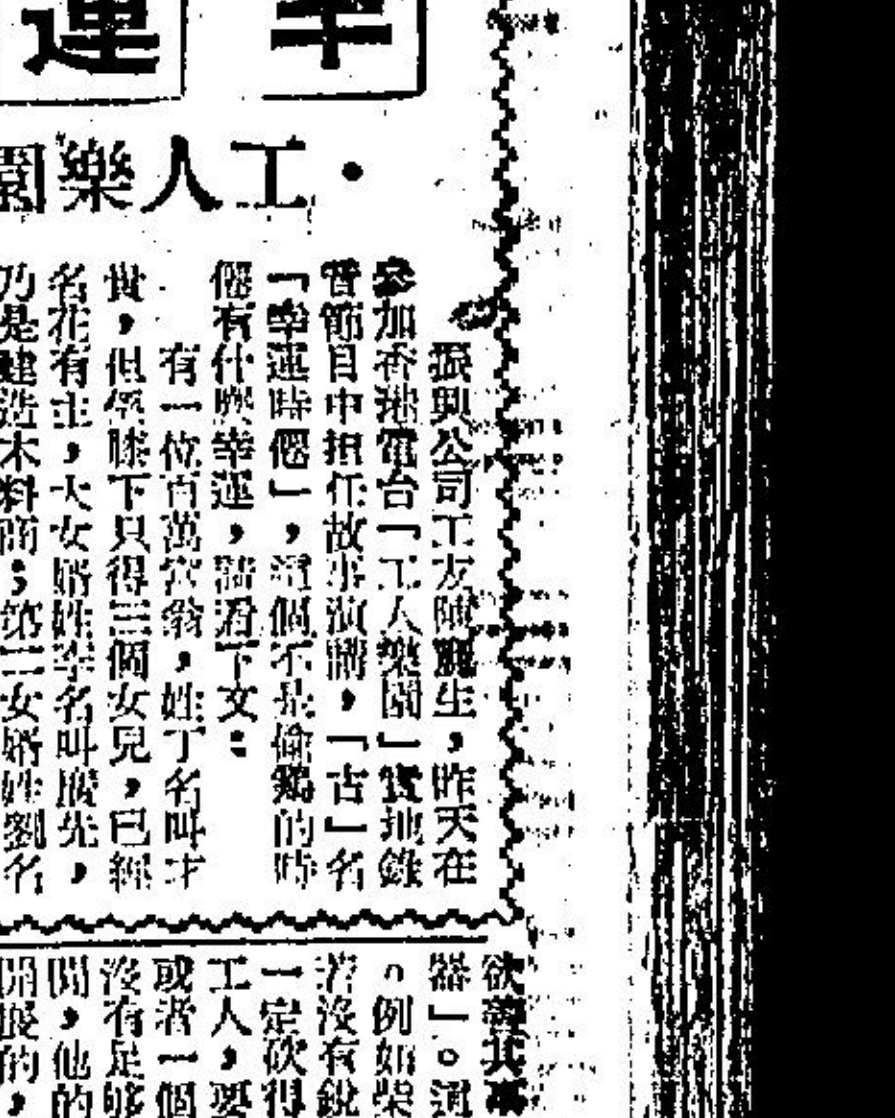 幸運
・工人樂園
振興公司工友陳麗生,昨天在
參加香港電台「工人樂園」實地錄
音節目中担任故事演講,「古」名
「幸運時偲」,這個不是偷鷄的時
偲有什麽幸運,請看下文:
有一位百萬富翁,姓丁名叫才
貴,但係膝下只得三個女兒,已經
名花有主,大女婿姓李名叫廣先,
乃是建造木料商;第二女婿姓劉名
欲善其事
器」。這
。例如柴
若沒有銳
一定砍得
工人,要
或者一個
沒有足够
間,他的
開展的,